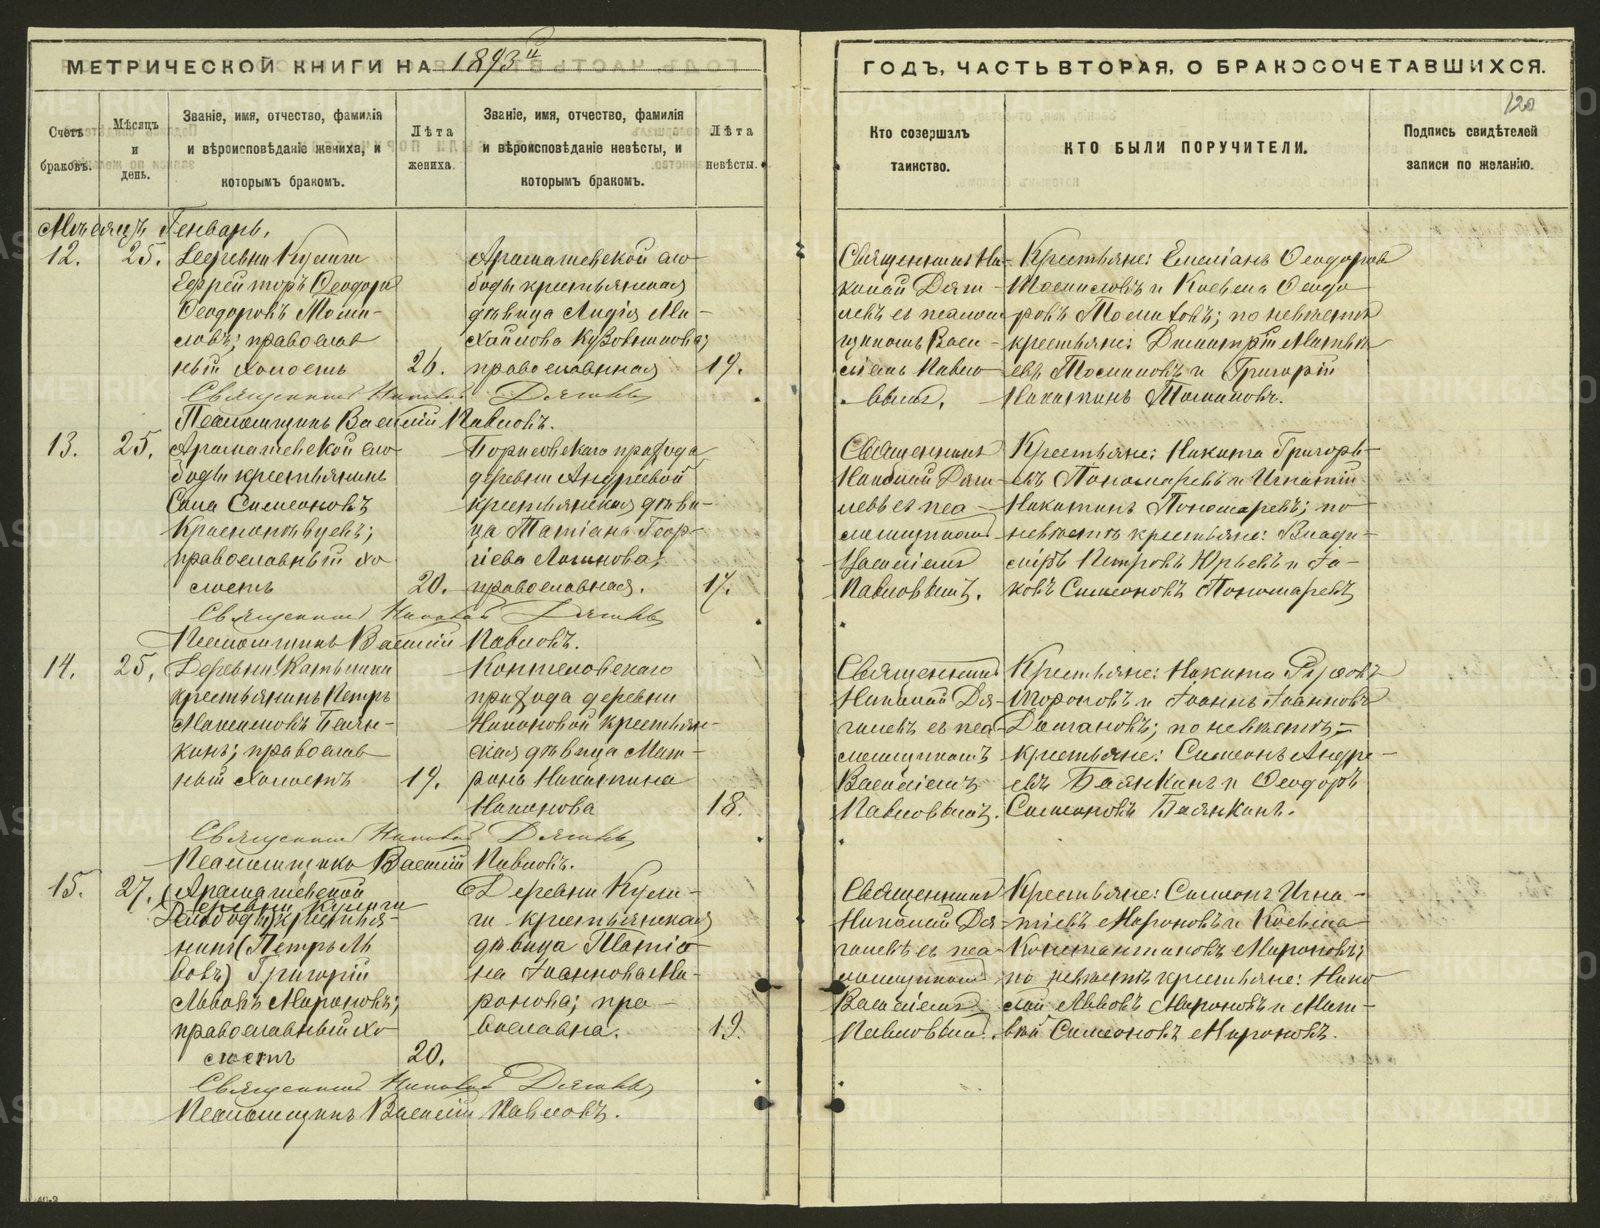 МЕТРИЧЕСКОЙ КНИГИ НА 1893й
ГОДЪ, ЧАСТЬ ВТОРАЯ, О БРАКОСОЧЕТАВШИХСЯ.
120
Счетъ браковъ.
Мѣсяцъ и день.
Званіе, имя, отчество, фамилія
и вѣроисповѣданіе жениха, и
которымъ бракомъ.
Лѣта жениха.
Званіе, имя, отчество, фамилія
и вѣроисповѣданіе невѣсты, и
которымъ бракомъ.
Лѣта невѣсты.
Кто созершалъ
таинство.
КТО БЫЛИ ПОРУЧИТЕЛИ.
Подпись свидѣтелей
записи по желанію.
Мѣсяцъ Генварь.
12. 25.
Деревни Кулиги
Ефрейторъ Ѳеодоръ
Ѳеодоровъ
православ
ный холостъ
26.
Арамашевской сло
боды крестьянская
дѣвица Лидія Ми-
хайлова
православная
19.
Священникъ Ни-
колай Дяги-
левъ съ псалом
щикомъ Васи-
ліемъ Павло
вымъ.
Крестьяне: Емеліанъ Ѳеодоровъ
и Косьма Ѳеодо
ровъ по невѣстѣ
крестьяне: Димитрій Матвѣ
евъ и Григорій
Никитинъ
Священникъ Николай Дягилевъ
Псаломщикъ Василій Павловъ.
13. 25.
Арамашевской сло
боды крестьянинъ
Сава Симеоновъ
православный хо
лостъ
20.
Борисовскаго прихода
деревни Андреевой
крестьянская дѣви-
ца Татіана Геор-
гіева Логинова;
православная.
17.
Священникъ
Николай Дяги-
левъ съ пса-
ломщикомъ
Василіемъ
Павловымъ.
Крестьяне: Никита Григорь-
евъ Пономаревъ и Игнатій
Никитинъ Пономаревъ; по
невѣстѣ крестьяне: Влади-
міръ Петровъ Юрьевъ и Іа-
ковъ Симеоновъ Пономаревъ
Священникъ Николай Дягилевъ
Псаломщикъ Василій Павловъ.
14. 25.
Деревни
крестьянинъ Петръ
Максимовъ Баян-
кинъ; православ
ный холостъ
19.
Коптеловскаго
прихода деревни
Никоновой крестьян-
ская дѣвица Мат-
рона Никитина
Никонова
18.
Священникъ
Николай Дя-
гилевъ съ пса-
ломщикомъ
Василіемъ
Павловымъ.
Крестьяне: Никита
и Іоаннъ Іоанновъ
по невѣстѣ
крестьяне: Симеонъ Андре-
евъ Баянкинъ и Ѳеодоръ
Симеоновъ Баянкинъ.
Священникъ Николай Дягилевъ
Псаломщикъ Василій Павловъ.
15. 27.
(Арамашевской
Деревни Кулиги
Слободы) крестья-
нинъ (Петръ Ль
вовъ) Григорій
Львовъ Мироновъ;
православный хо
лостъ
20.
Деревни Кули-
ги крестьянская
дѣвица Татіа
на Іоаннова Ми-
ронова; пра-
вославна.
19.
Священникъ
Николай Дя-
гилевъ съ пса-
ломщикомъ
Василіемъ
Павловымъ.
Крестьяне: Симеонъ Игна-
тіевъ Мироновъ и Косьма
Константиновъ Мироновъ;
по невѣстѣ крестьяне: Нико
лай Львовъ Мироновъ и Мат-
вѣй Симеоновъ Мироновъ.
Священникъ Николай Дягилевъ
Псаломщикъ Василій Павловъ.